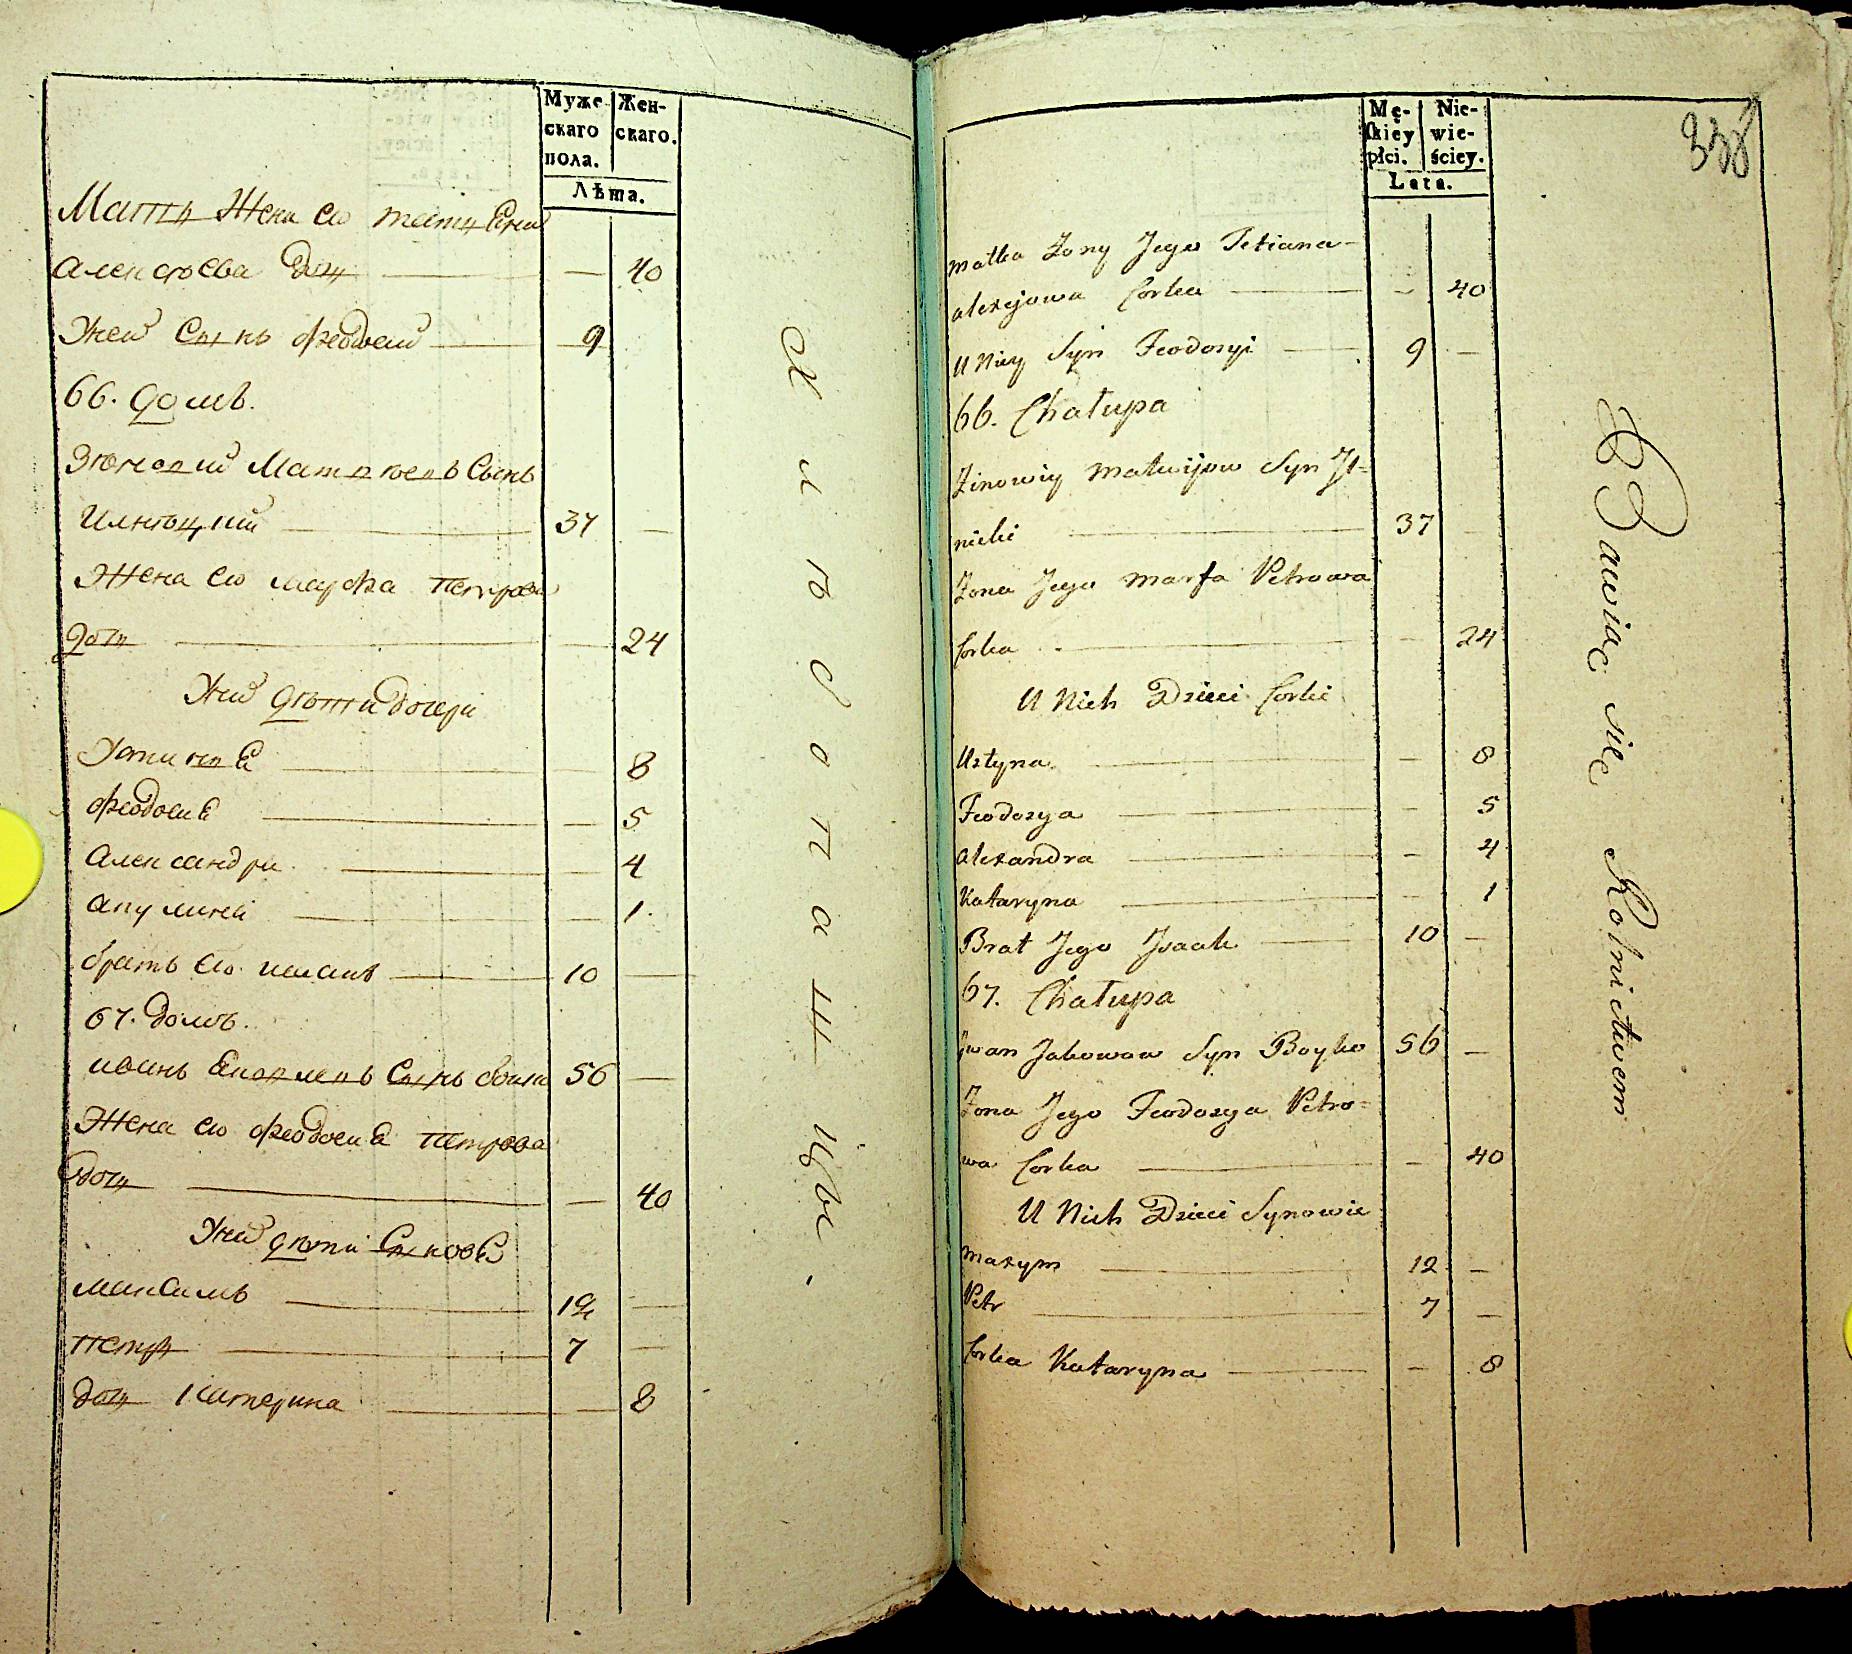 Муже- Жен-
скаго скаго.
пола.
Лѣта.
Мать Жены его татиѣна
алексѣева дочь — 40
Унеи Сынъ феодосий 9
66. домъ.
Зѣновий Матвѣевъ Сынъ
Илнѣцкий 37 —
Жена его марфа петрова
дочь — 24
Уних дѣти дочери
Устинѣ — 8
феодосиѣ — 5
александра — 4
акулина — 1.
братъ его исаакъ 10 —
67. домъ.
иванъ Яковлевъ Сынъ бойко 56 —
Жена его феодосиѣ петрова
дочь — 40
Уних дѣти Сыновѣ
максимъ 12 —
петръ 7 —
дочь катерина — 8
Хлѣбопашцы.
Mę- Nie-
skiey wie-
płci. ściey.
Lata.
338
matka Żony Jego Tetiana
alexejowa Corka — 40
U Niey Syn Feodosyi 9 —
66. Chałupa
Zinowiy Matwijow Syn Jl-
nicki 37 —
Żona Jego Marfa Petrowa
Corka — 24
U Nich Dzieci Corki
Ustyna — 8
Feodosya — 5
alexandra — 4
Kataryna — 1
Brat Jego Jsaak 10 —
67. Chałupa
Jwan Jakowow Syn Boyko 56 —
Żona Jego Feodosya Petro-
wa Corka — 40
U Nich Dzieci Synowie
maxym 12 —
Petr 7 —
Corka Kataryna — 8
Bawiąc się Rolnictwem